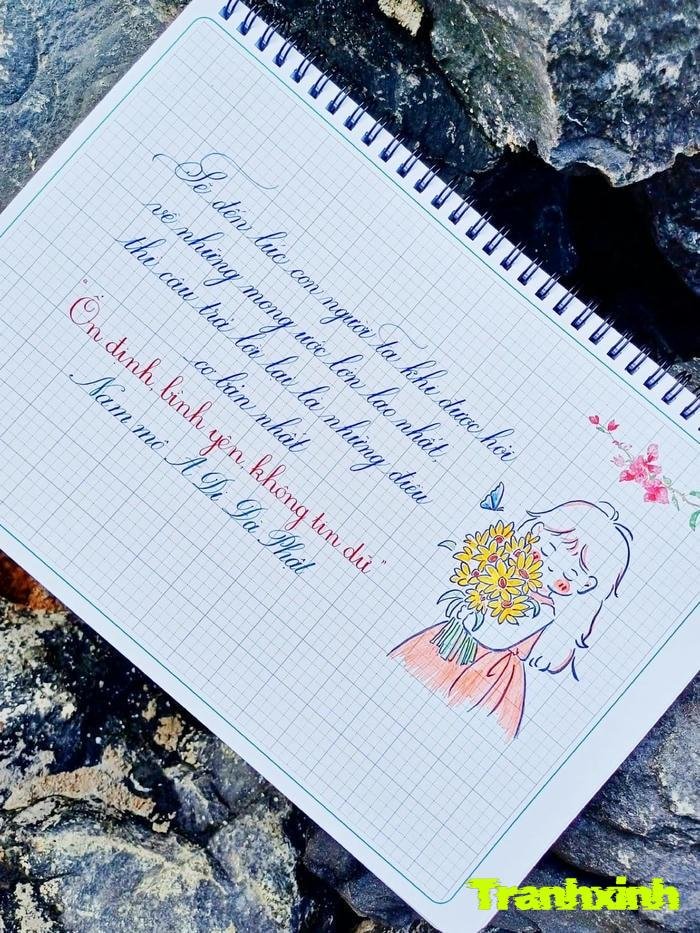 Sẽ đến lúc con người ta khi được hỏi
về những mong ước lớn lao nhất,
thì câu trả lời lại là những điều
cơ bản nhất
"Ổn định, bình yên, không tin dữ"
Nam mô A Di Đà Phật
Tranhxinh